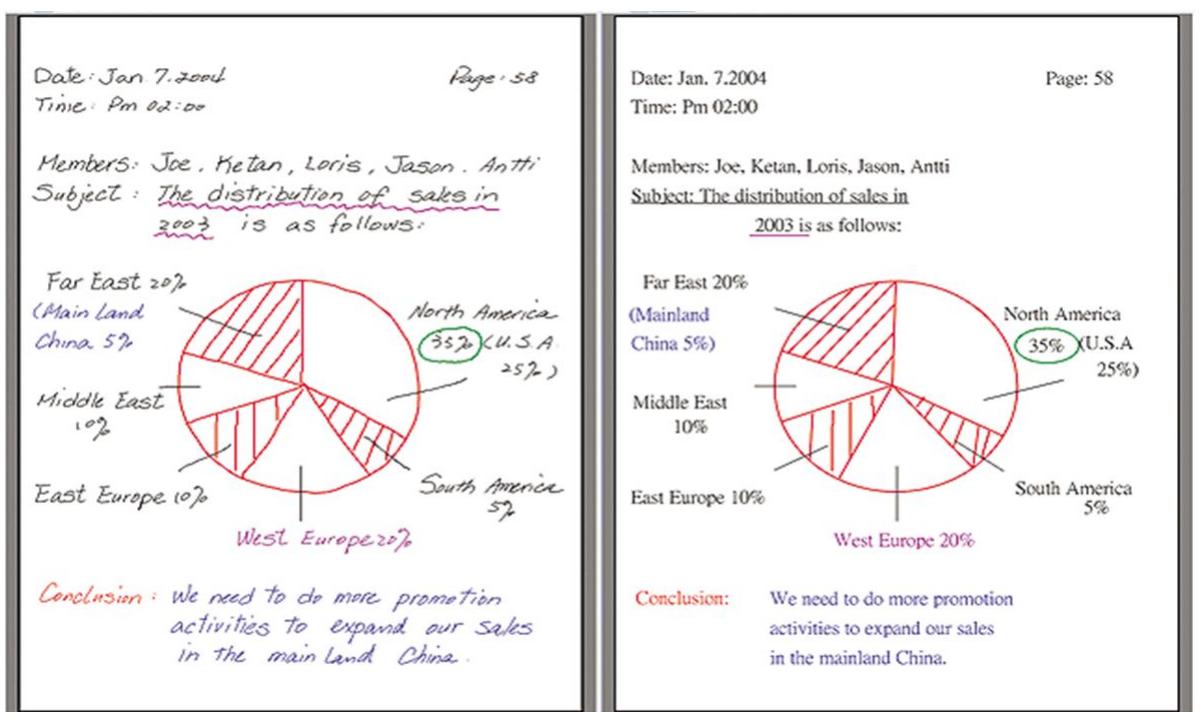 Date: Jan 7.2004 Page: 58
Time: Pm 02:00
Members: Joe, Ketan, Loris, Jason. Antti
Subject: The distribution of sales in
2003 is as follows:
Far East 20%
(Main Land
China 5%
North America
35% (U.S.A.
25%)
Middle East
10%
East Europe 10%
South America
5%
West Europe 20%
Conclusion: We need to do more promotion
activities to expand our sales
in the main Land China.
Date: Jan. 7.2004 Page: 58
Time: Pm 02:00
Members: Joe, Ketan, Loris, Jason, Antti
Subject: The distribution of sales in
2003 is as follows:
Far East 20%
(Mainland
China 5%)
North America
35% (U.S.A
25%)
Middle East
10%
East Europe 10%
South America
5%
West Europe 20%
Conclusion: We need to do more promotion
activities to expand our sales
in the mainland China.